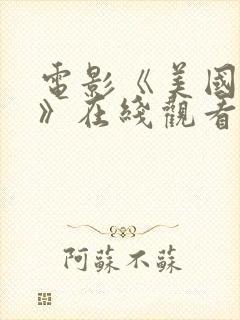 電影《美國
》在綫觀看
阿蘇不蘇